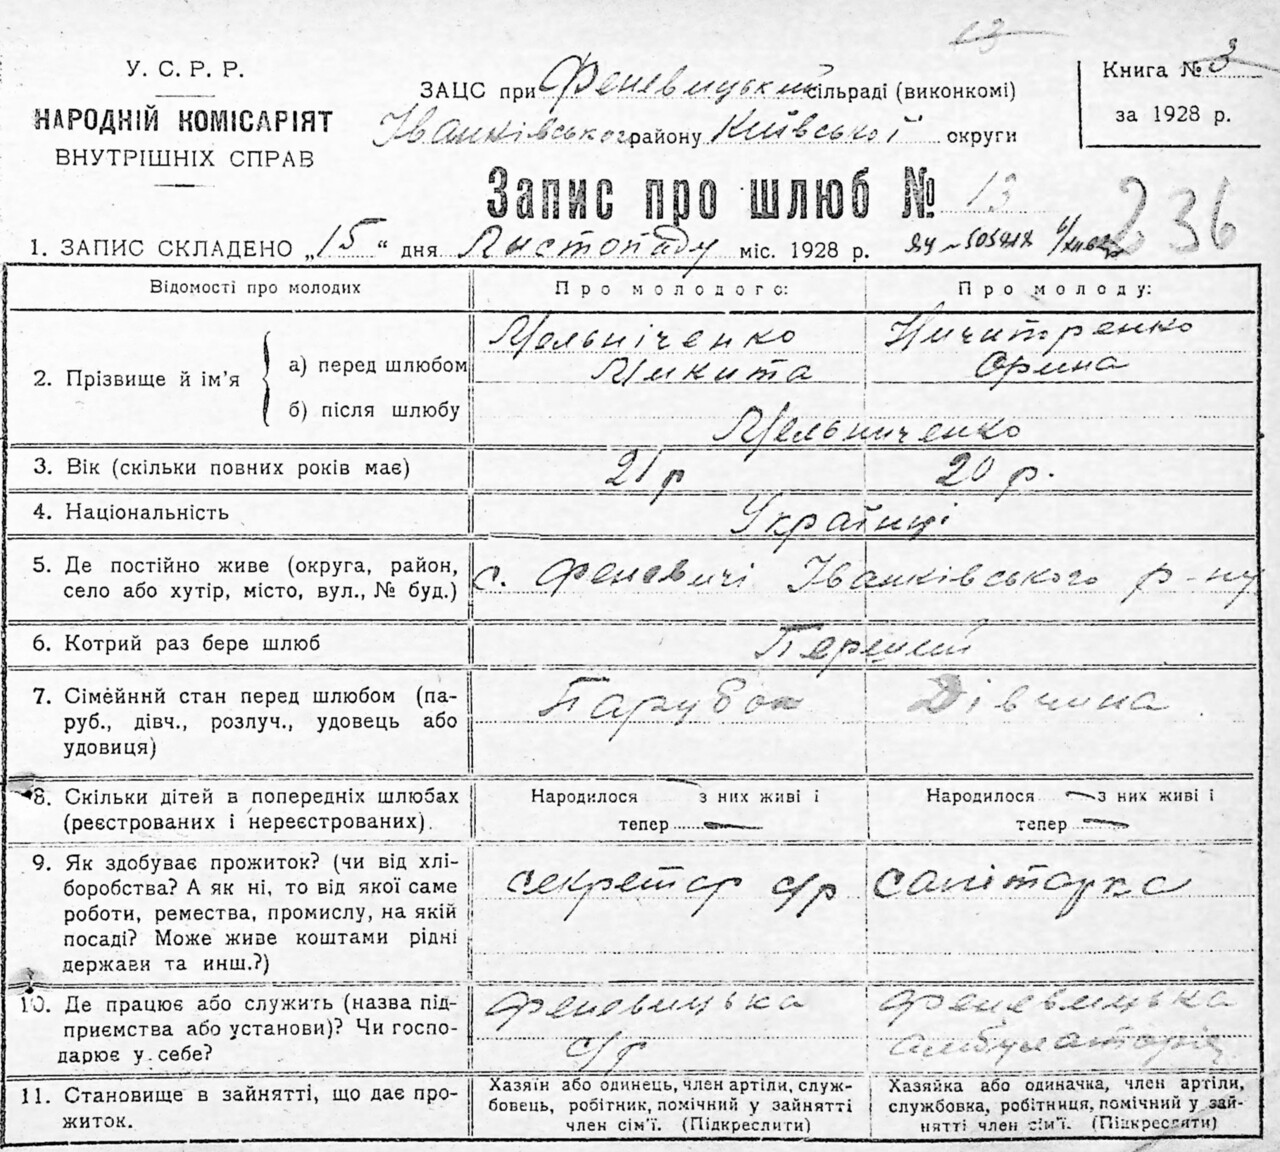 13
У. С. Р. Р.
НАРОДНІЙ КОМІСАРІЯТ
ВНУТРІШНІХ СПРАВ
ЗАЦС при Феневицькій сільраді (виконкомі)
Іванківського району Київської округи
Книга № 3
за 1928 р.
Запис про шлюб № 13
236
1. ЗАПИС СКЛАДЕНО „15“ дня Листопаду міс. 1928 р.
Відомості про молодих
Про молодого:
Про молоду:
2. Прізвище й ім'я
а) перед шлюбом
б) після шлюбу
Мельніченко
Микита
Орина
Мельниченко
3. Вік (скільки повних років має)
21 р
20 р.
4. Національність
Українці
5. Де постійно живе (округа, район,
село або хутір, місто, вул., № буд.)
с. Феневичі Іванківського р-ну
6. Котрий раз бере шлюб
Перший
7. Сімейний стан перед шлюбом (па-
руб., дівч., розлуч., удовець або
удовиця)
Парубок
Дівчина
8. Скільки дітей в попередніх шлюбах
(реєстрованих і нереєстрованих).
Народилося — з них живі і
тепер —
Народилося — з них живі і
тепер —
9. Як здобуває прожиток? (чи від хлі-
боробства? А як ні, то від якої саме
роботи, ремества, промислу, на якій
посаді? Може живе коштами рідні
держави та инш.?)
секретар с/р
санітарка
10. Де працює або служить (назва під-
приємства або установи)? Чи госпо-
дарює у себе?
Феневицька
с/р
Феневицька
амбулаторія
11. Становище в зайнятті, що дає про-
житок.
Хазяїн або одинець, член артіли, служ-
бовець, робітник, помічний у зайнятті
член сім'ї. (Підкреслити)
Хазяйка або одиначка, член артіли,
службовка, робітниця, помічний у зай-
нятті член сім'ї. (Підкреслити)